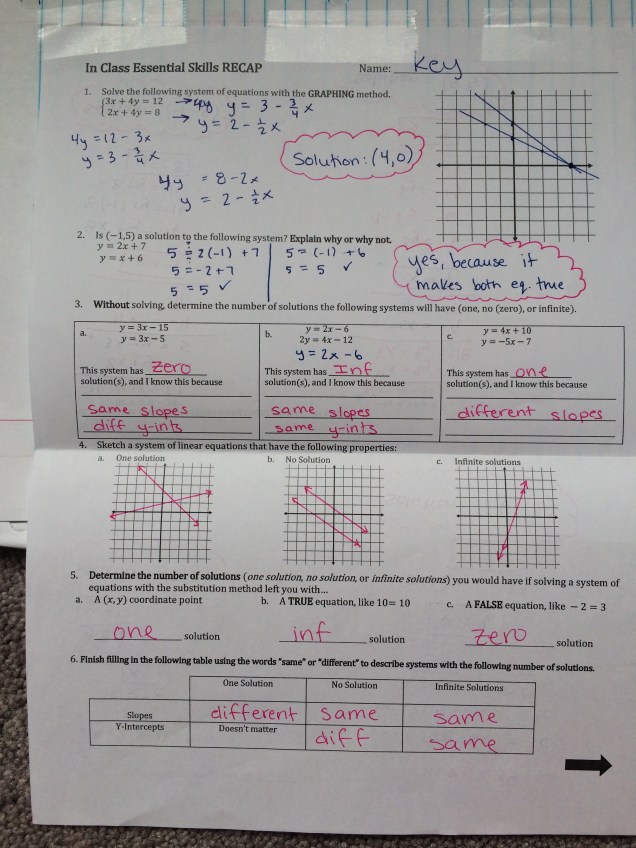 In Class Essential Skills RECAP
Name: Key
1. Solve the following system of equations with the GRAPHING method.
{3x + 4y = 12 → y = 3 - 3/4 x
{2x + 4y = 8 → y = 2 - 1/2 x
4y = 12 - 3x
y = 3 - 3/4 x
Solution: (4,0)
4y = 8 - 2x
y = 2 - 1/2 x
2. Is (−1,5) a solution to the following system? Explain why or why not.
y = 2x + 7
y = x + 6
5 ≟ 2(-1) + 7
5 = -2 + 7
5 = 5 ✓
5 = (-1) + 6
5 = 5 ✓
yes, because it
makes both eq. true
3. Without solving, determine the number of solutions the following systems will have (one, no (zero), or infinite).
a. y = 3x − 15
y = 3x − 5
This system has Zero
solution(s), and I know this because
same slopes
diff y-ints
b. y = 2x − 6
2y = 4x − 12
y = 2x - 6
This system has Inf
solution(s), and I know this because
same slopes
same y-ints
c. y = 4x + 10
y = −5x − 7
This system has one
solution(s), and I know this because
different slopes
4. Sketch a system of linear equations that have the following properties:
a. One solution b. No Solution c. Infinite solutions
5. Determine the number of solutions (one solution, no solution, or infinite solutions) you would have if solving a system of
equations with the substitution method left you with...
a. A (x, y) coordinate point b. A TRUE equation, like 10= 10 c. A FALSE equation, like − 2 = 3
one solution inf solution zero solution
6. Finish filling in the following table using the words "same" or "different" to describe systems with the following number of solutions.
One Solution No Solution Infinite Solutions
Slopes different same same
Y-Intercepts Doesn't matter diff same